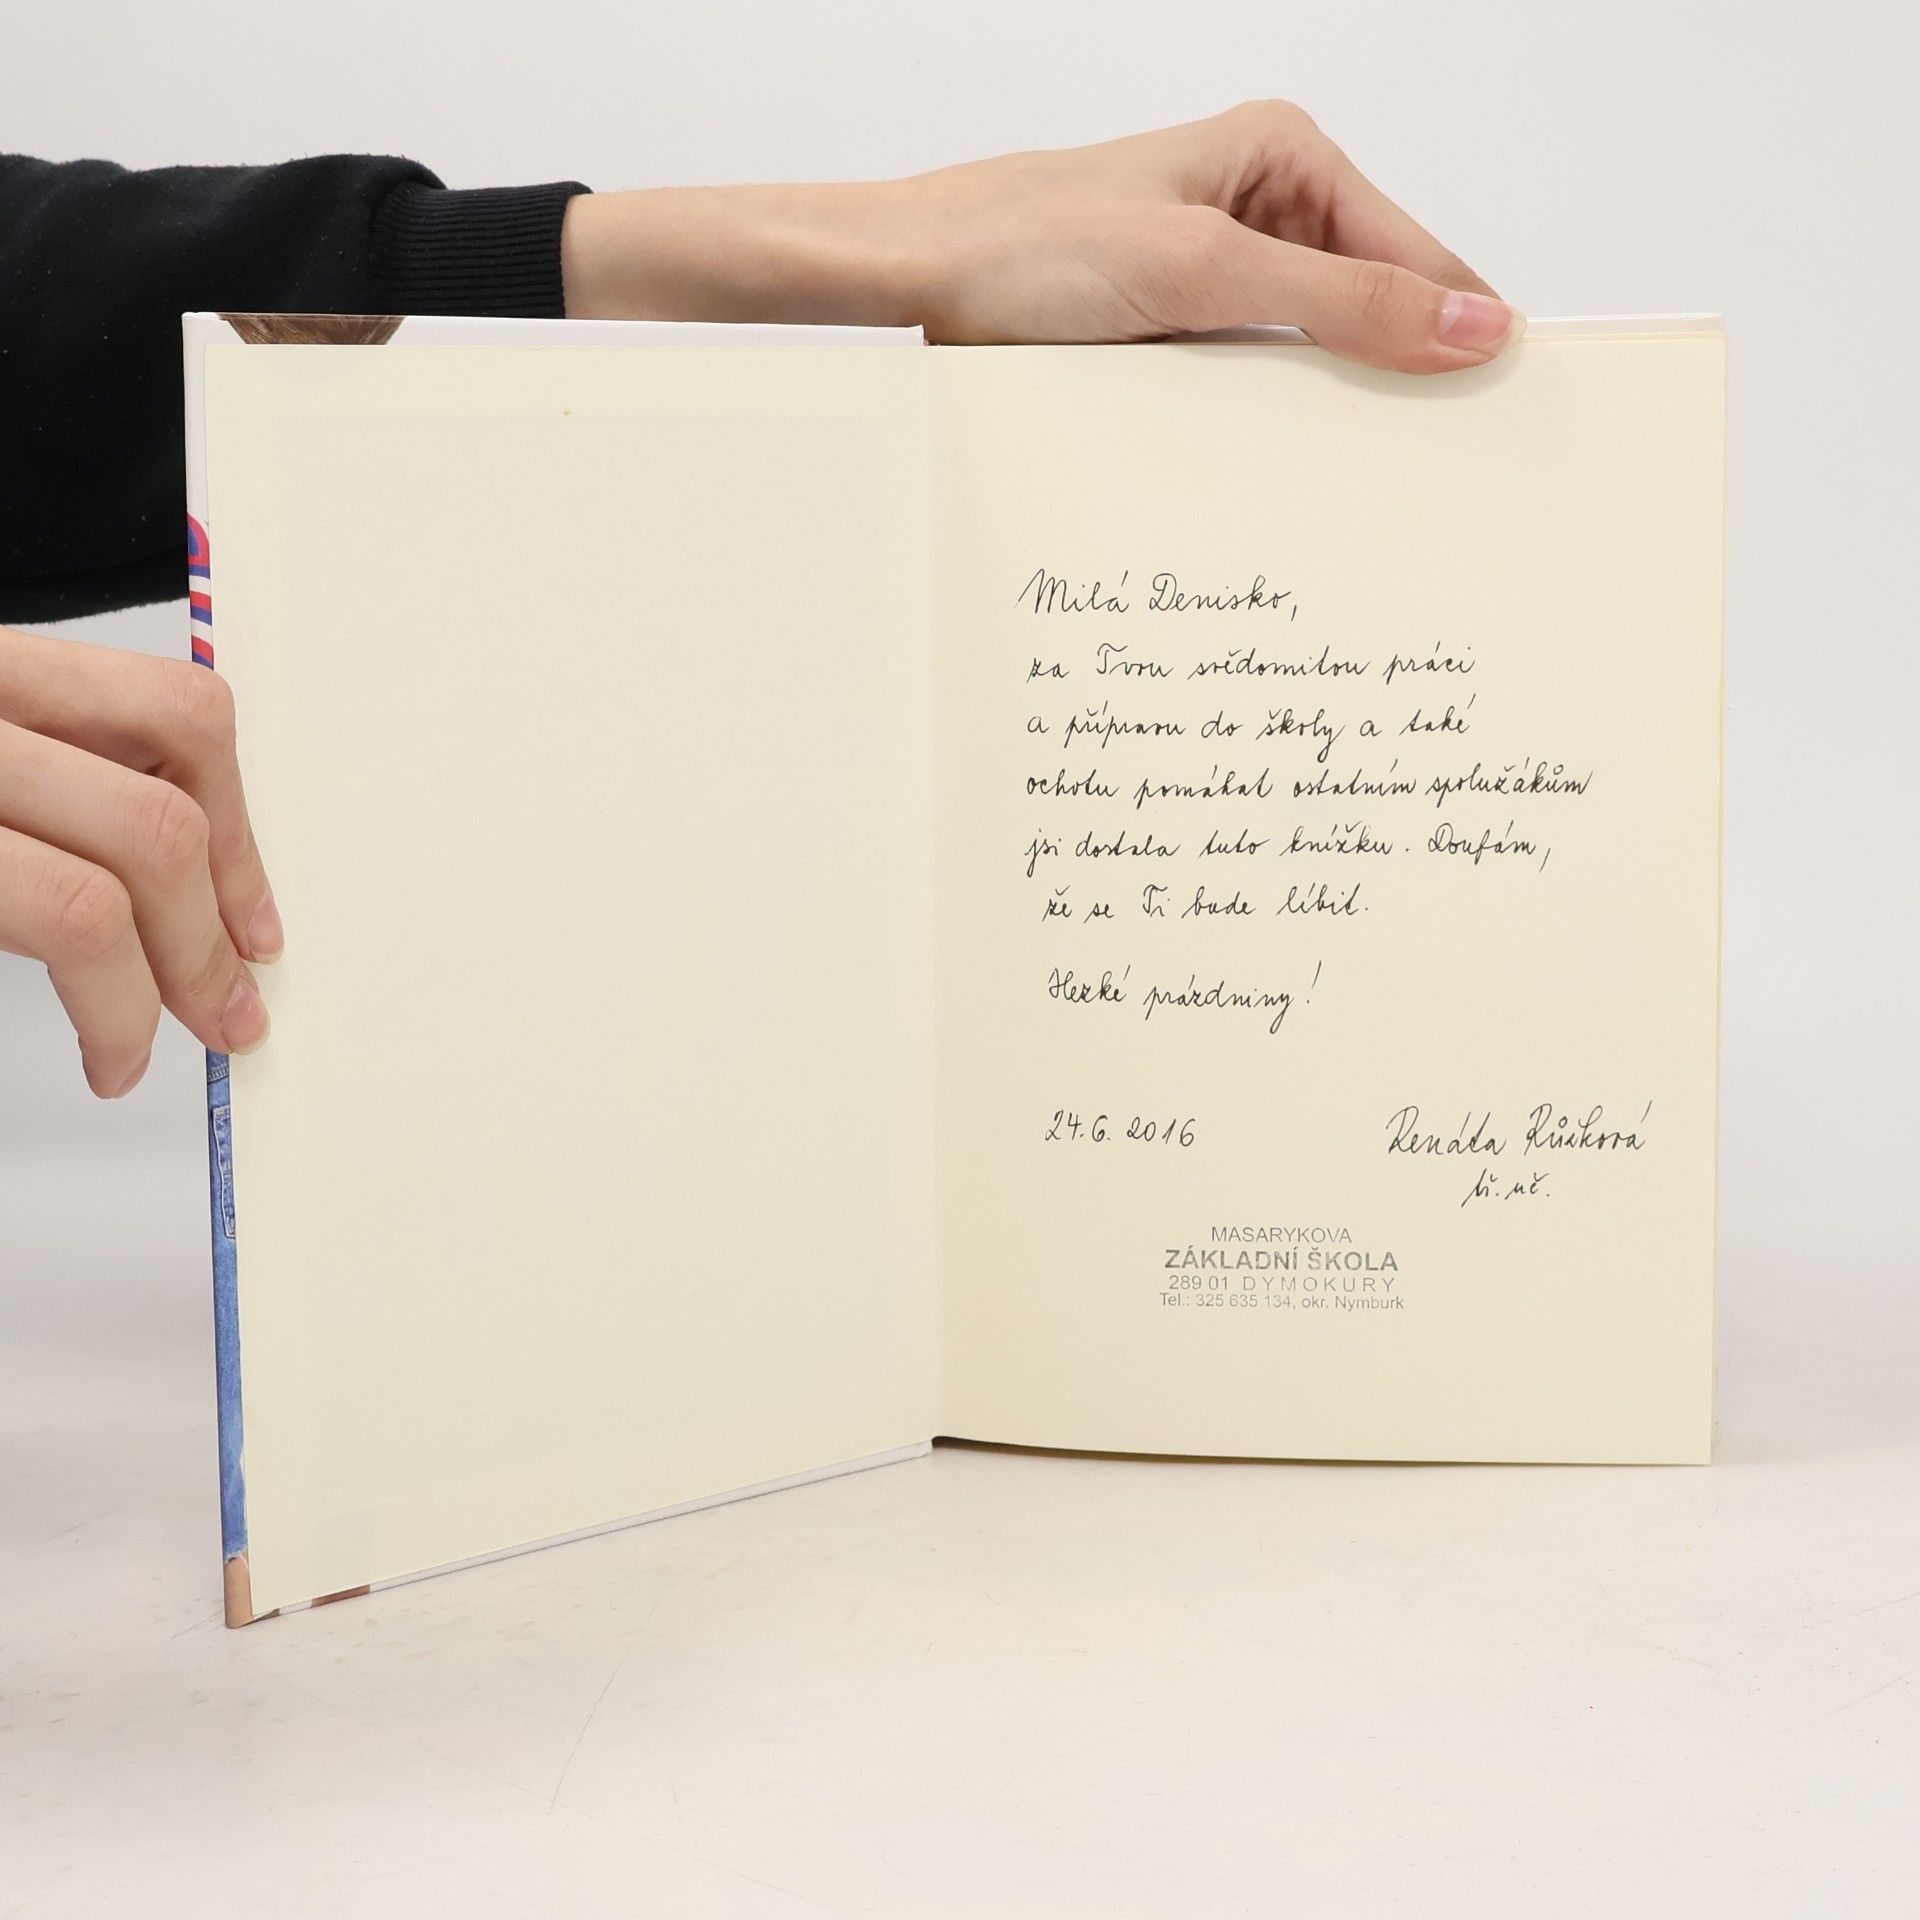 Milá Denisko,
za Tvou svědomitou práci
a přípravu do školy a také
ochotu pomáhat ostatním spolužákům
jsi dostala tuto knížku. Doufám,
že se Ti bude líbit.
Hezké prázdniny!
24.6. 2016
Renáta Růžková
tř. uč.
MASARYKOVA
ZÁKLADNÍ ŠKOLA
289 01 DYMOKURY
Tel.: 325 635 134, okr. Nymburk